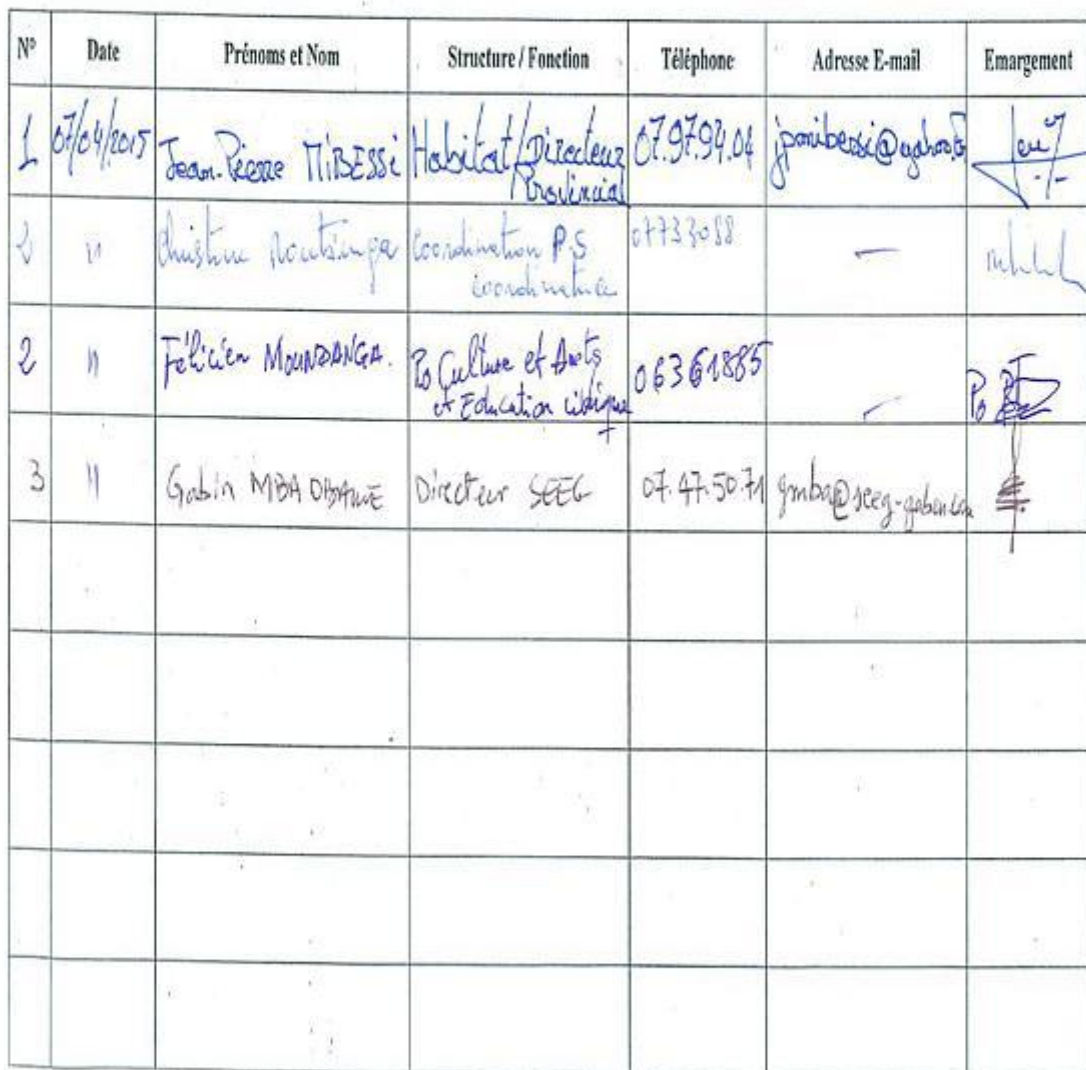 N° Date Prénoms et Nom Structure / Fonction Téléphone Adresse E-mail Emargement
1 07/04/2015 Jean-Pierre MIBESSI Habitat/Directeur Provincial 07.97.94.04
" Christine Coordination P.S coordinatrice 07733088 —
2 " Félicien MOUNDANGA. Po Culture et Arts et Education civique 06361885 — Po
3 " Gabin MBA Directeur SEEG 07.47.50.71